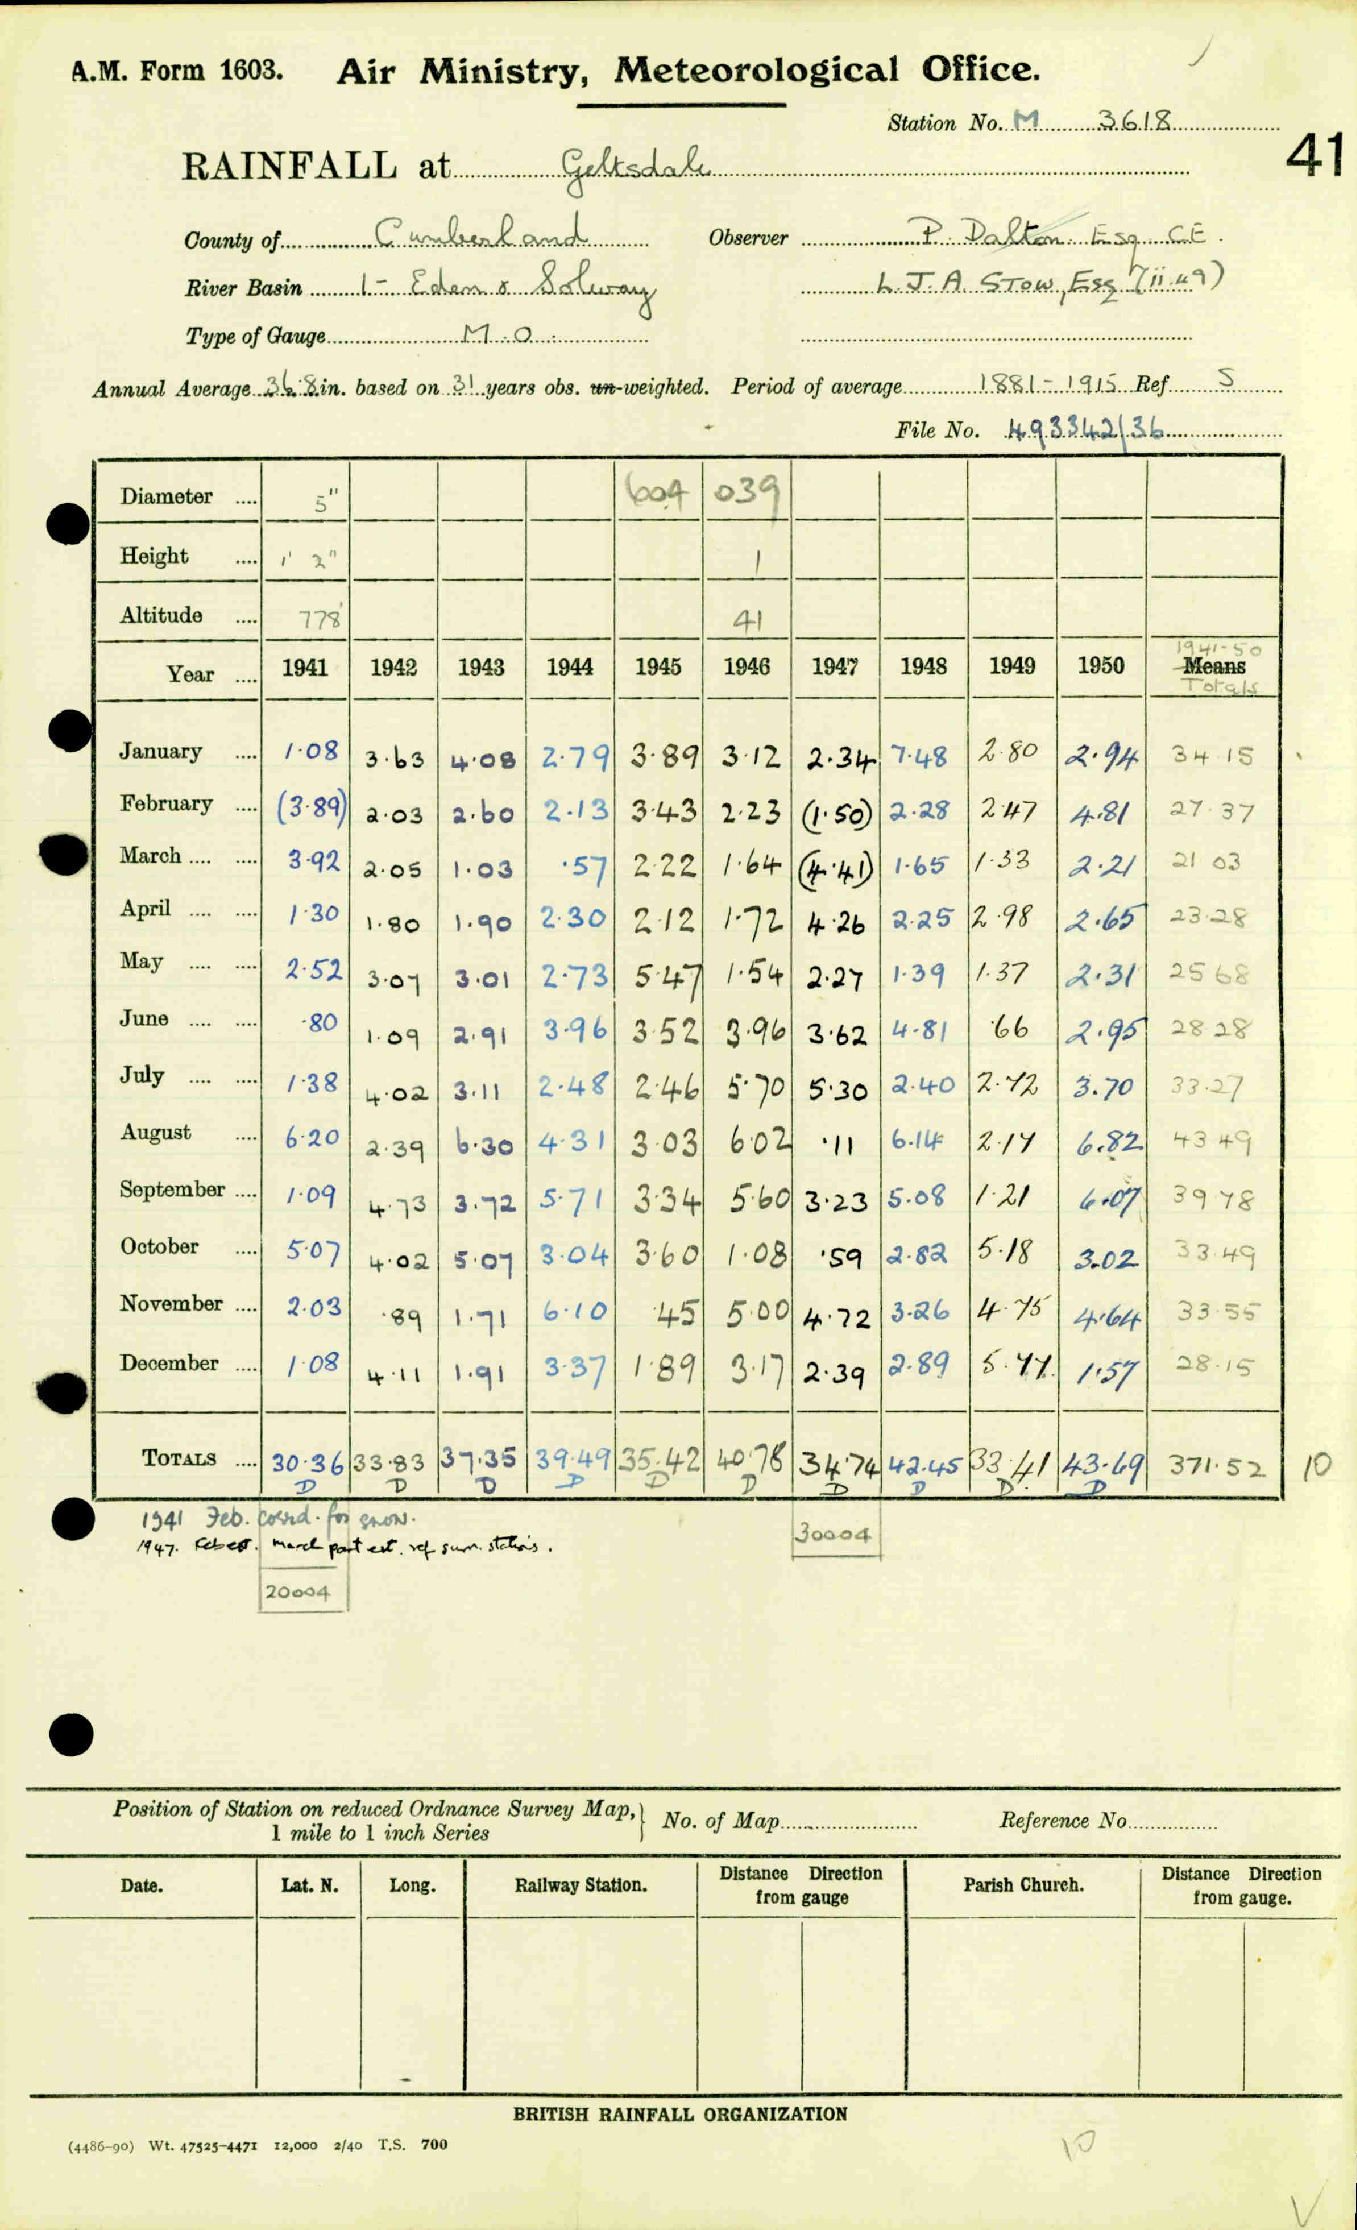 A.M. Form 1603. Air Ministry, Meteorological Office.
Station No. M 3618
41
RAINFALL at Geltsdale
County of Cumberland Observer P. Dalton. Esq C.E.
River Basin 1- Eden & Solway L. J. A STOW, Esq (ii.49)
Type of Gauge M.O.
Annual Average 36.8 in. based on 31 years obs. un-weighted. Period of average 1881-1915 Ref S
File No. 493342/36
Diameter .... 5" 604 039
Height .... 1' 2" 1
Altitude .... 778' 41
1941-50
Year .... 1941 1942 1943 1944 1945 1946 1947 1948 1949 1950 Means
Totals
January .... 1.08 3.63 4.08 2.79 3.89 3.12 2.34 7.48 2.80 2.94 34.15
February .... (3.89) 2.03 2.60 2.13 3.43 2.23 (1.50) 2.28 2.47 4.81 27.37
March .... .... 3.92 2.05 1.03 .57 2.22 1.64 (4.41) 1.65 1.33 2.21 21 03
April .... .... 1.30 1.80 1.90 2.30 2.12 1.72 4.26 2.25 2.98 2.65 23.28
May .... .... 2.52 3.07 3.01 2.73 5.47 1.54 2.27 1.39 1.37 2.31 25 68
June .... .... .80 1.09 2.91 3.96 3.52 3.96 3.62 4.81 .66 2.95 28 28
July .... .... 1.38 4.02 3.11 2.48 2.46 5.70 5.30 2.40 2.72 3.70 33.27
August .... 6.20 2.39 6.30 4.31 3.03 6.02 .11 6.14 2.17 6.82 43 49
September .... 1.09 4.73 3.72 5.71 3.34 5.60 3.23 5.08 1.21 6.07 39 78
October .... 5.07 4.02 5.07 3.04 3.60 1.08 .59 2.82 5.18 3.02 33.49
November .... 2.03 .89 1.71 6.10 .45 5.00 4.72 3.26 4.75 4.64 33 55
December .... 1.08 4.11 1.91 3.37 1.89 3.17 2.39 2.89 5.77 1.57 28.15
TOTALS .... 30.36 33.83 37.35 39.49 35.42 40.78 34.74 42.45 33.41 43.69 371.52 10
D D D D D D D D D D
1941 Feb. corrd. for snow.
1947. Feb est. March part est. ref surr. stations.
30004
20004
Position of Station on reduced Ordnance Survey Map, } No. of Map Reference No.
1 mile to 1 inch Series
Date. Lat. N. Long. Railway Station. Distance Direction from gauge Parish Church. Distance Direction from gauge.
BRITISH RAINFALL ORGANIZATION
(4486-90) Wt. 47525-4471 12,000 2/40 T.S. 700
10
V